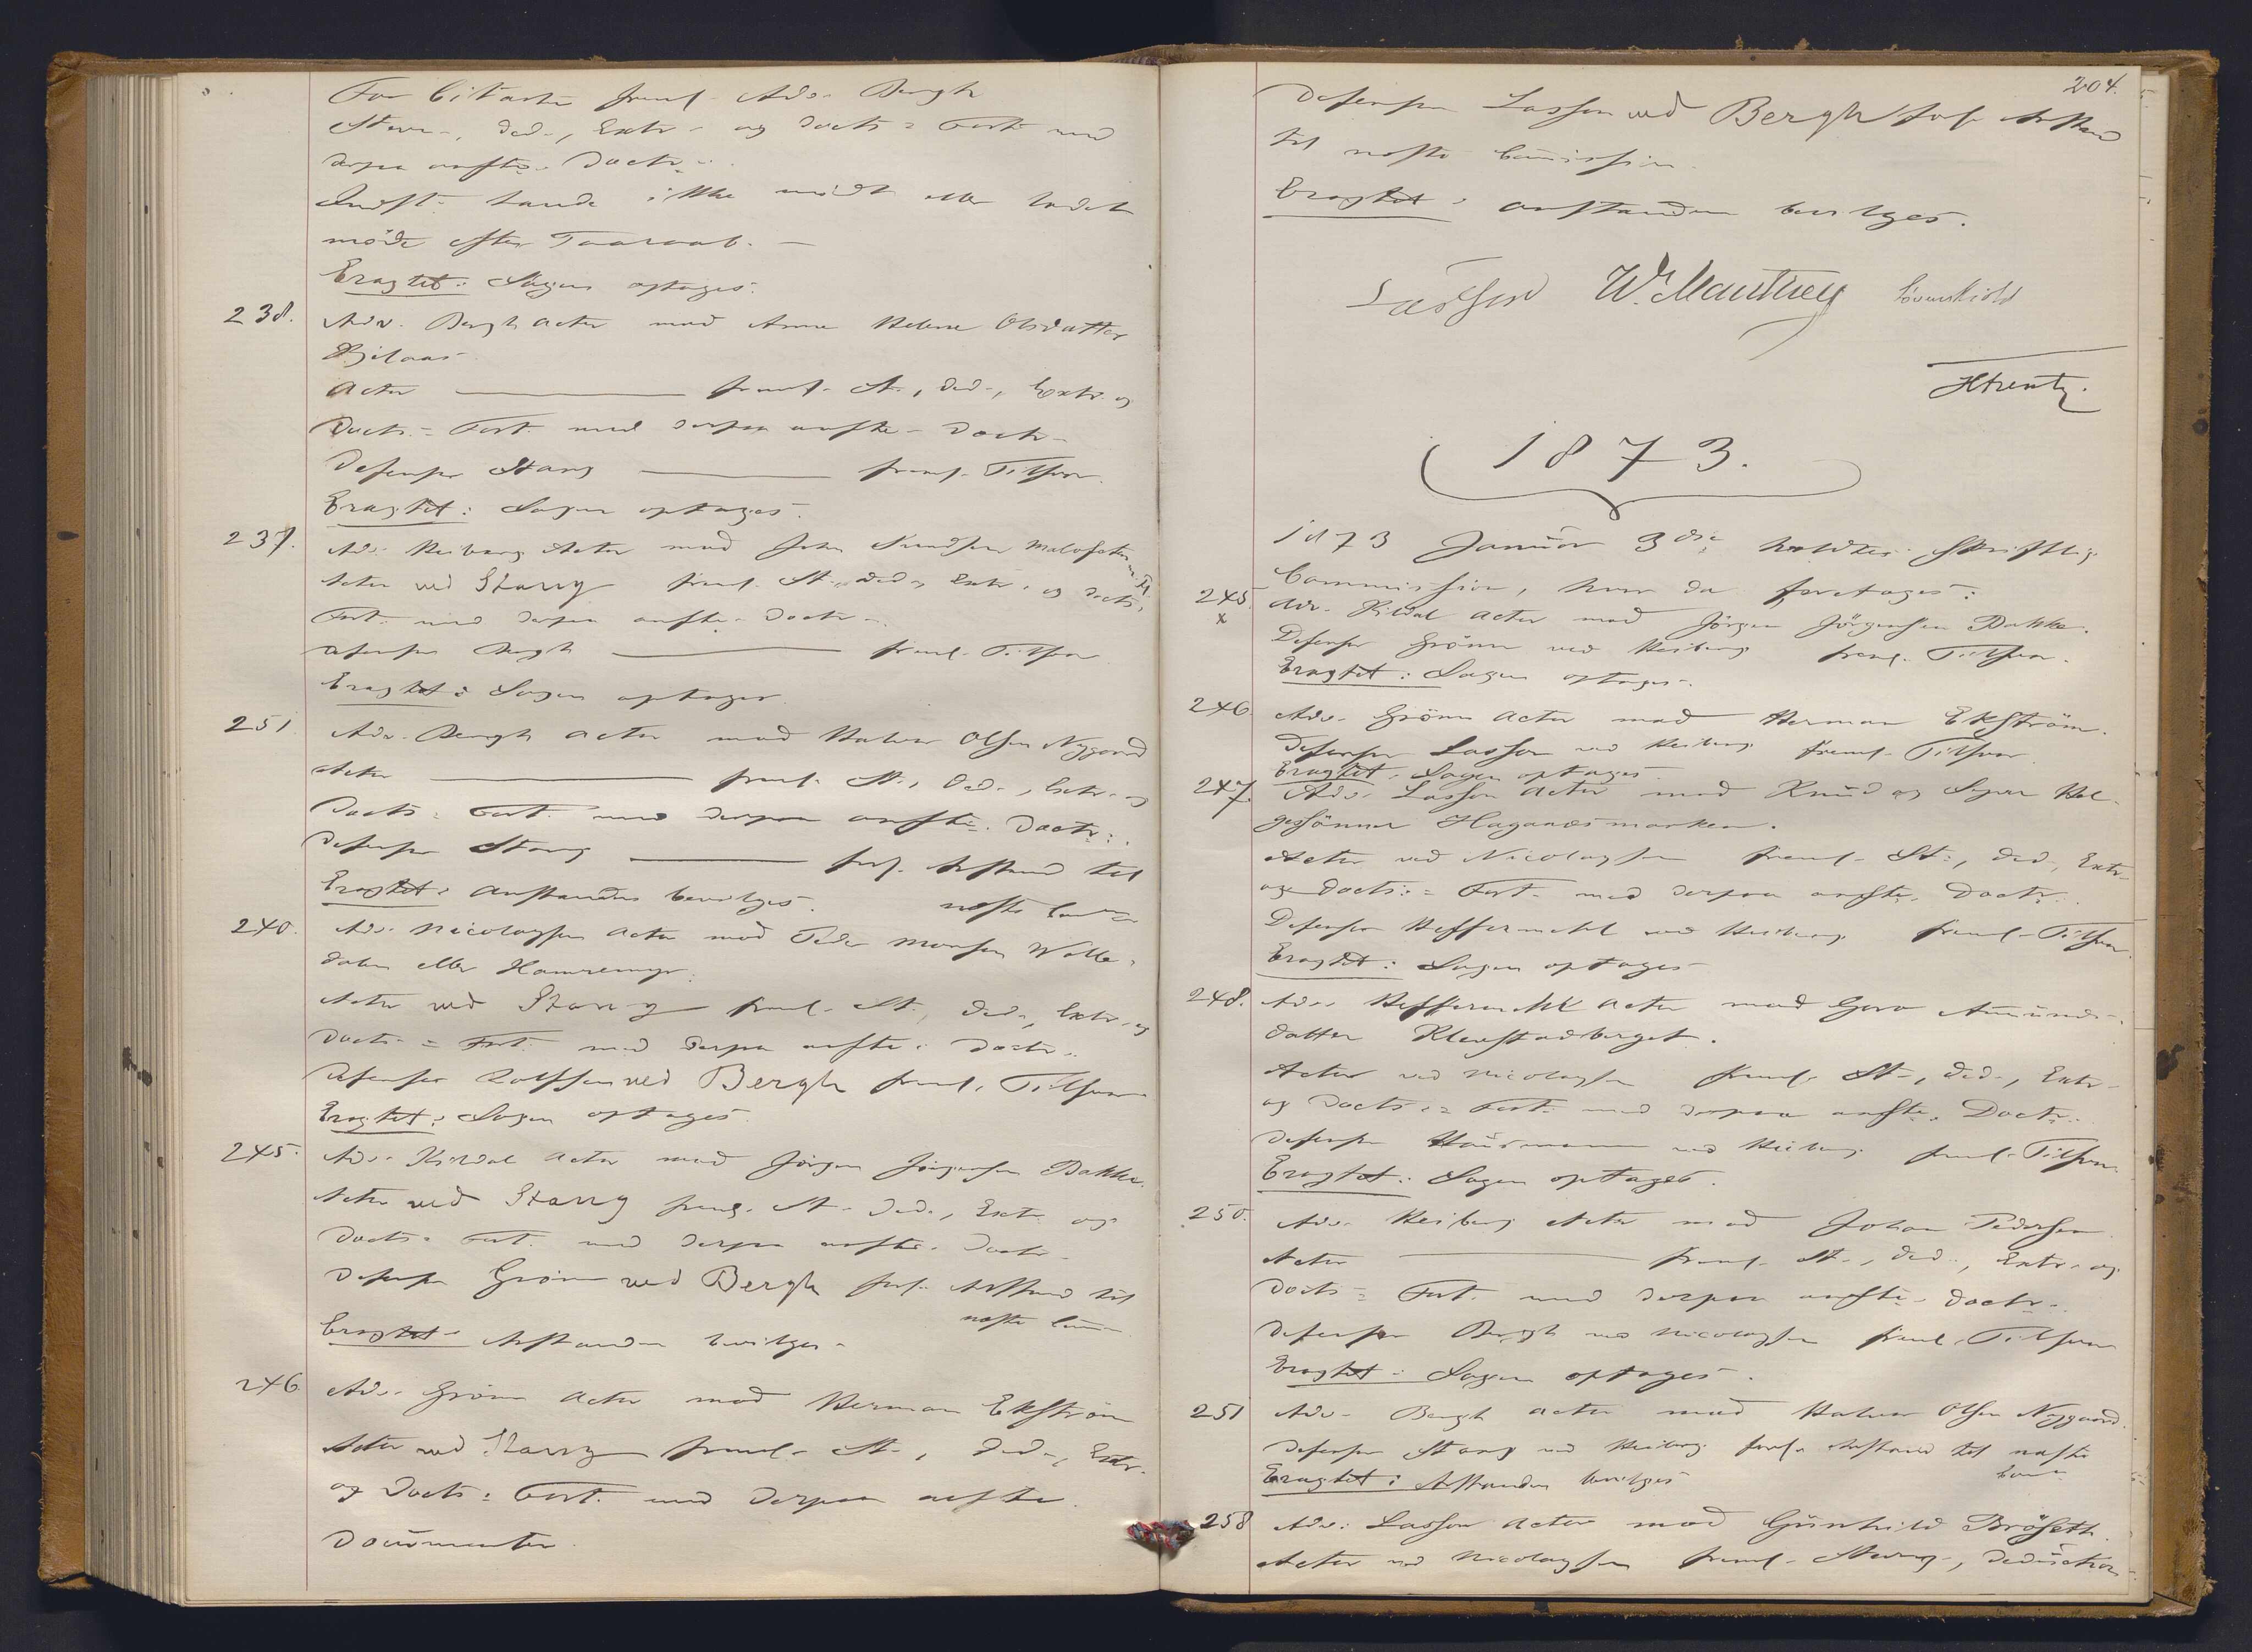 For Citanten freml. Adv. Bergh
Stevn., Ded., Extr. og Docts. Fort. med
derpaa anførte Doctr.
Indst. havde ikke mødt eller ladet
møde efter Paaraab. —
Eragtet: Sagen optages.
238. Adv. Bergh Actor mod Anne Helene Olsdatter
Actor — freml. St., Ded., Extr. og
Docts. Fort. med derpaa anførte Doctr.
Defensor Stang — freml. Tilsvar.
Eragtet: Sagen optages.
237. Adv. Heiberg Actor mod John Knudsen
Actor ved Stang freml. St., Ded., Extr. og Docts.
Fort. med derpaa anførte Doctr.
Defensor Bergh — freml. Tilsvar
Eragtet: Sagen optages
251. Adv. Bergh Actor mod Halvor Olsen Nygaard
Actor — freml. St., Ded., Extr. og
Docts. Fort. med derpaa anførte Doctr.
Defensor Stang — forl. Anstand til
Eragtet: Anstanden bevilges. næste
240. Adv. Nicolaysen Actor mod Peder Monsen Wolle-
dalen eller
Actor ved Stang freml. St., Ded., Extr. og
Docts. Fort. med derpaa anførte Doctr.
Defensor Rolfsen ved Bergh freml. Tilsvar
Eragtet: Sagen optages.
245. Adv. Kildal Actor mod Jörgen Jörgensen Bakke.
Actor ved Stang freml. St. Ded., Extr. og
Docts. Fort. med derpaa anførte Doctr.
Defensor Grönn ved Bergh forl. Anstand til
næste
Eragtet: Anstanden bevilges.
246. Adv. Grönn Actor mod Herman Ekström
Actor ved Stang freml. St., Ded., Extr.
og Docts. Fort. med derpaa anførte
Documenter.
204.
Defensor Lasson ved Bergh forl. Anstand
til næste Commission.
Eragtet: Anstanden bevilges.
Lasson W. Manthey Løvenskiold
1873.
1873 Januar 3die holdtes skriftlig
Commission, hvor da foretages:
245. x Adv. Kildal Actor mod Jörgen Jörgensen Bakke.
Defensor Grönn ved Heiberg freml. Tilsvar.
Eragtet: Sagen optages.
246. Adv. Grönn Actor mod Herman Ekström.
Defensor Lasson ved Heiberg freml. Tilsvar
Eragtet: Sagen optages.
247. Adv. Lasson Actor mod Knud og Hel-
gesönner
Actor ved Nicolaysen freml. St., Ded., Extr.
og Docts. Fort. med derpaa anførte Doctr.
Defensor Heffermehl ved Heiberg freml. Tilsvar.
Eragtet: Sagen optages
248. Adv. Heffermehl Actor mod Goro Amunds-
datter Klevstadberget.
Actor ved Nicolaysen freml. St., Ded., Extr.
og Docts. Fort. med derpaa anførte Doctr.
Defensor Haüsmann ved Heiberg freml. Tilsvar.
Eragtet: Sagen optages.
250. Adv. Heiberg Actor mod Johan Pedersen.
Actor — freml. St., Ded., Extr. og
Docts. Fort. med derpaa anførte Doctr.
Defensor Bergh ved Nicolaysen freml. Tilsvar
Eragtet: Sagen optages.
251 Adv. Bergh Actor mod Halvor Olsen Nygaard.
Defensor Stang ved Heiberg forl. Anstand til næste
Eragtet: Anstanden bevilges
258 Adv. Lasson Actor mod Günhild Bröseth.
Actor ved Nicolaysen freml. Stevng., Deduction